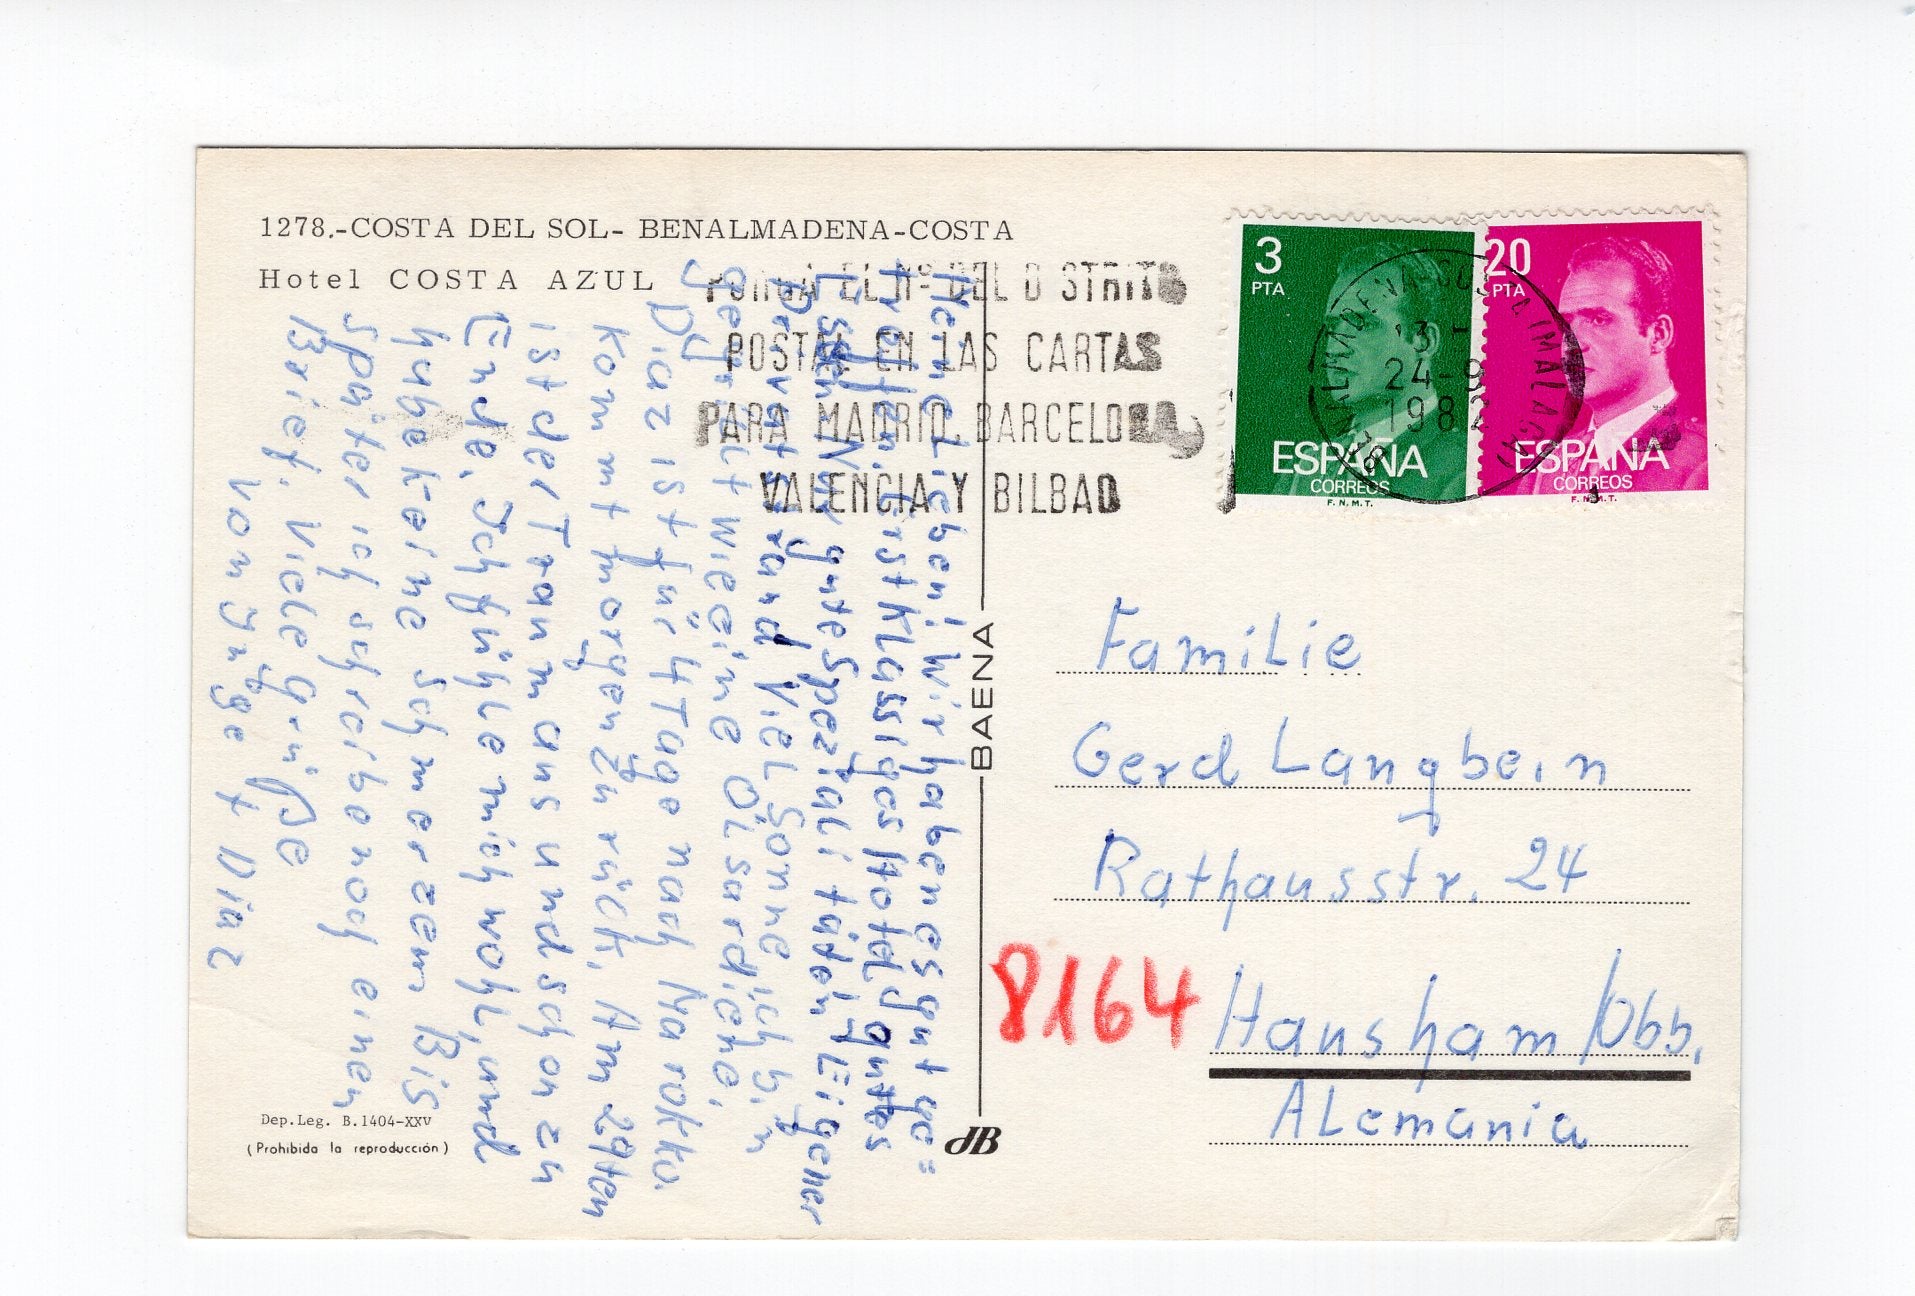 1278.-COSTA DEL SOL- BENALMADENA-COSTA
Hotel COSTA AZUL
PONGA EL Nº DEL DISTRITO
POSTAL EN LAS CARTAS
PARA MADRID, BARCELONA,
VALENCIA Y BILBAO
3
PTA
ESPAÑA
CORREOS
F.N.M.T.
20
PTA
ESPAÑA
CORREOS
F.N.M.T.
BENALMADENA-COSTA (MALAGA)
24-9
198
Meine Lieben! Wir haben es gut ge=
troffen. Erstklassiges Hotel, gutes
Essen. Nur gute Spezialitäten! Eigener
Privatstrand Viel Sonne ich bin
geölt wie eine Ölsardiene.
Diaz ist für 4 Tage nach Marokko
kommt morgen zurück. Am 29ten
ist der Traum aus und schon zu
Ende. Ich fühle mich wohl, und
habe keine Schmerzen Bis
später ich schreibe noch einen
Brief. Viele Grüße
von Inge + Diaz
BAENA
Familie
Gerd Langbein
Rathausstr. 24
8164 Hausham/Obb.
Alemania
Dep.Leg. B.1404-XXV
(Prohibida la reproducción)
JB